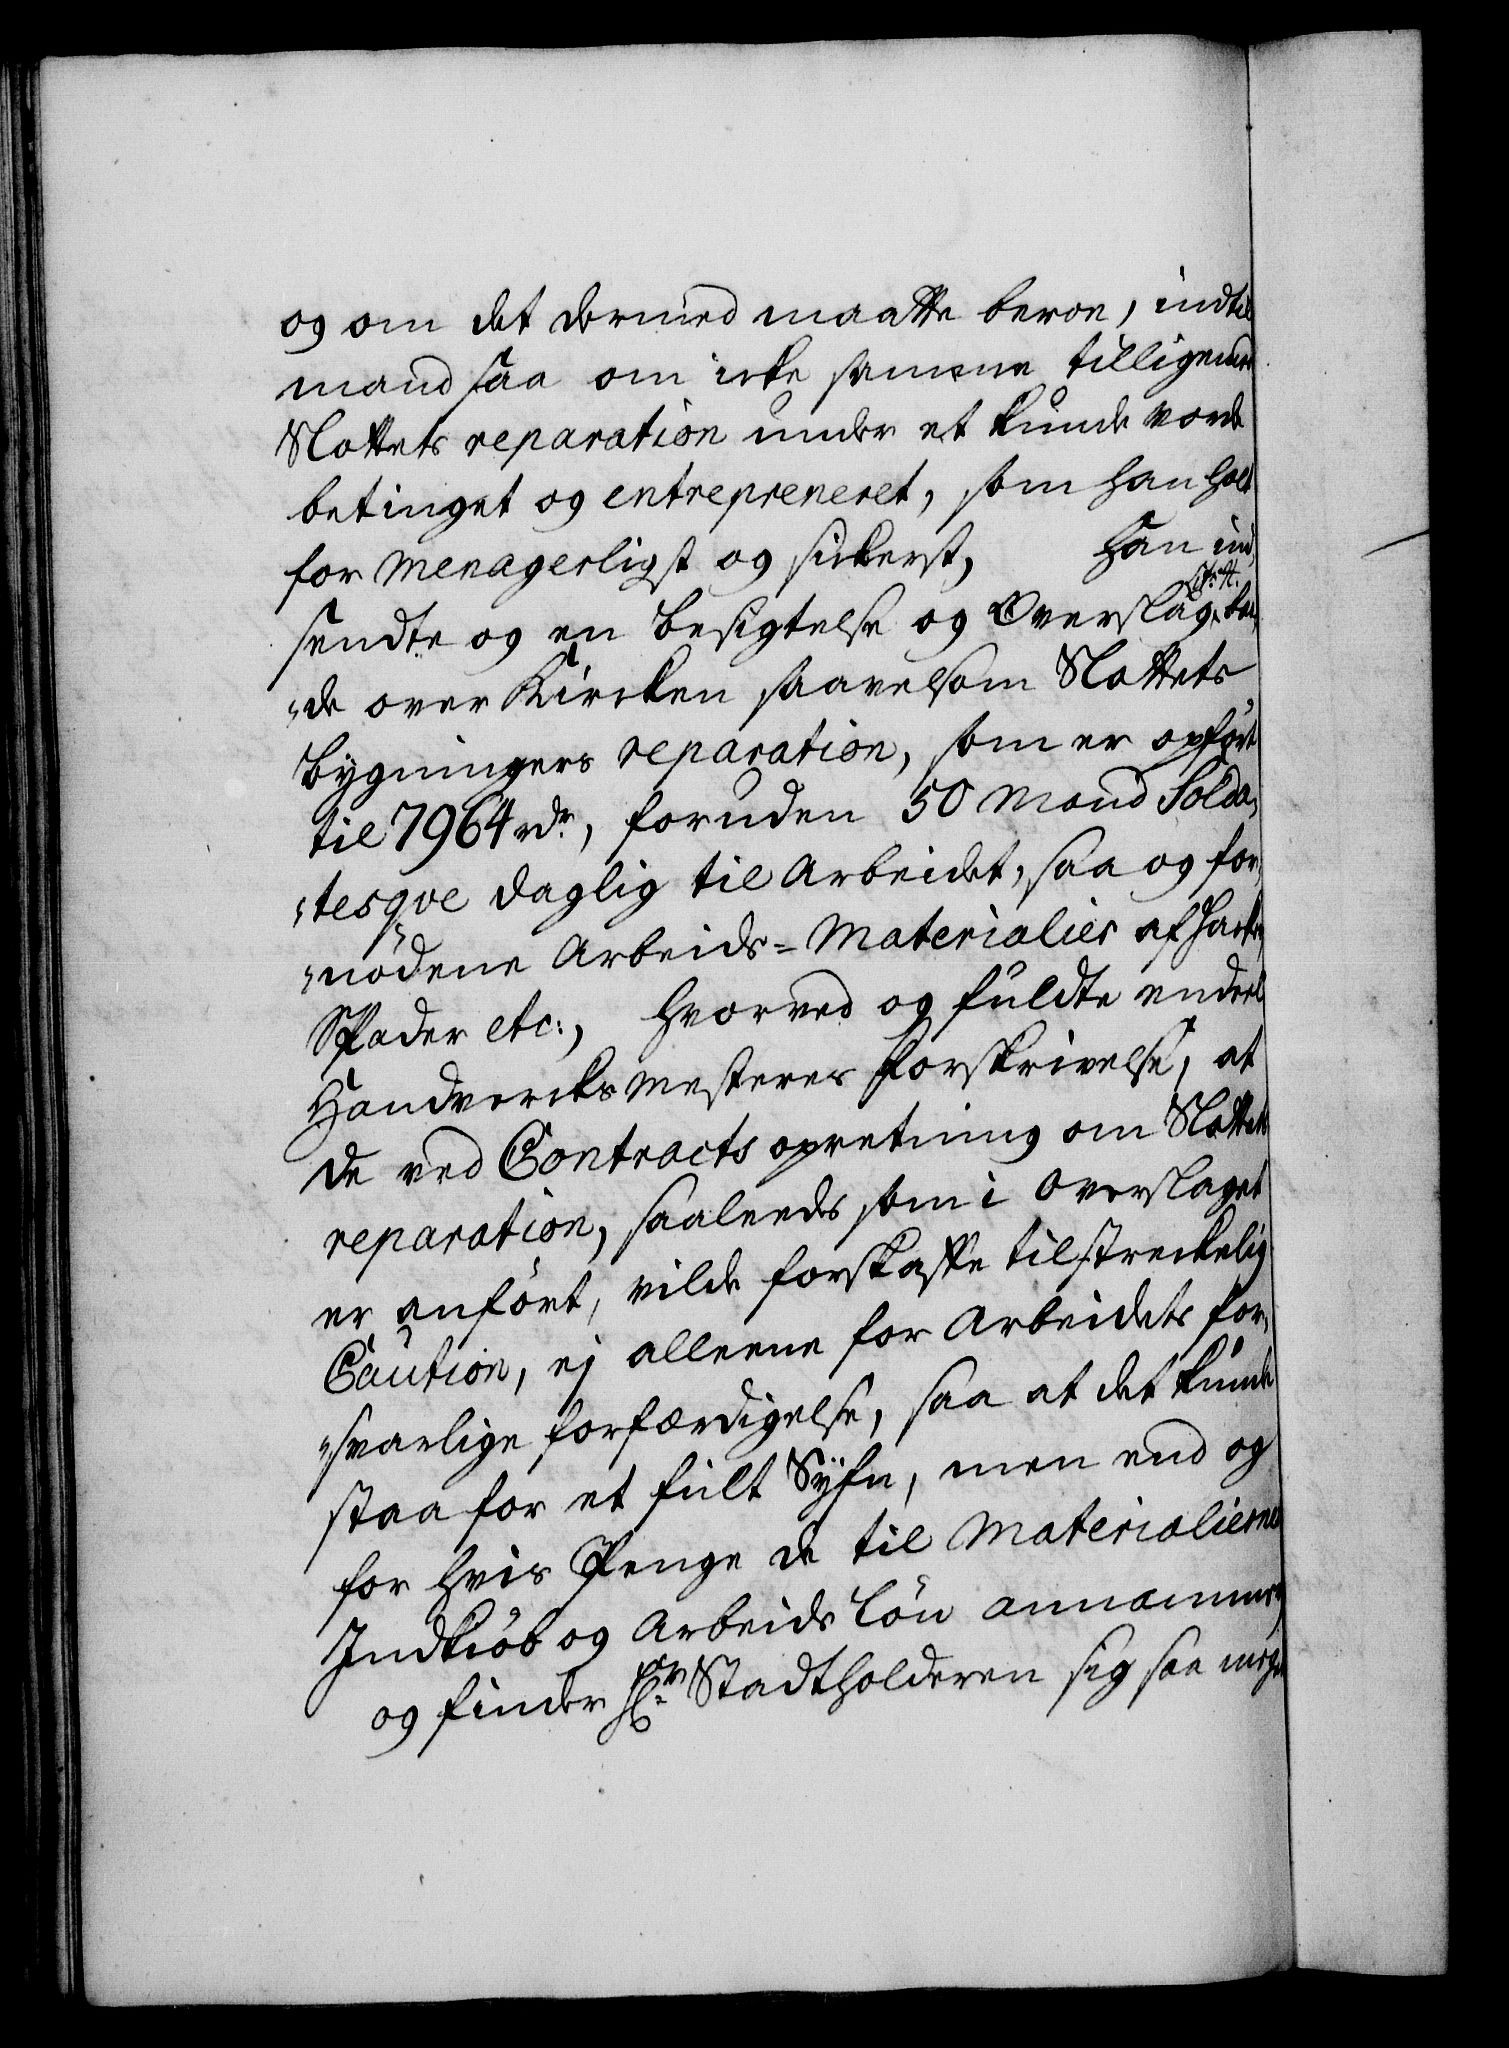 og om det dermed maatte beroe, indtil
mand saa om icke samme tilligemed
Slottets reparation under et kunde vorde
betinget og entrepreneret, som han holt
for menagerligst og sickerst, Han ind
Litr. A.
sendte og en besigtelse og Overslag, baa
de over Kircken saavelsom Slottets
bygningers reparation, som er opført
til 7964 rdr, foruden 50 Mand Solda
tesqve daglig til Arbeidet, saa og for
nødene Arbeids-Materialier af Hacker
Spader etc:, hvorved og fuldte endeel
Handvercks mesteres forskrivelse, at
de ved Contracts opretning om Slottets
reparation, saaleeds som i Overslaget
er anført, vilde forskaffe tilstreckelig
Caution, ej alleene for Arbeidets for
svarlige forfærdigelse, saa at det kunde
staa for et fult Syfn, men end og
for hvis Penge de til Materialiernes
Indkiøb og Arbeids løn annammer,
og finder Hr Stadtholderen sig saa meget